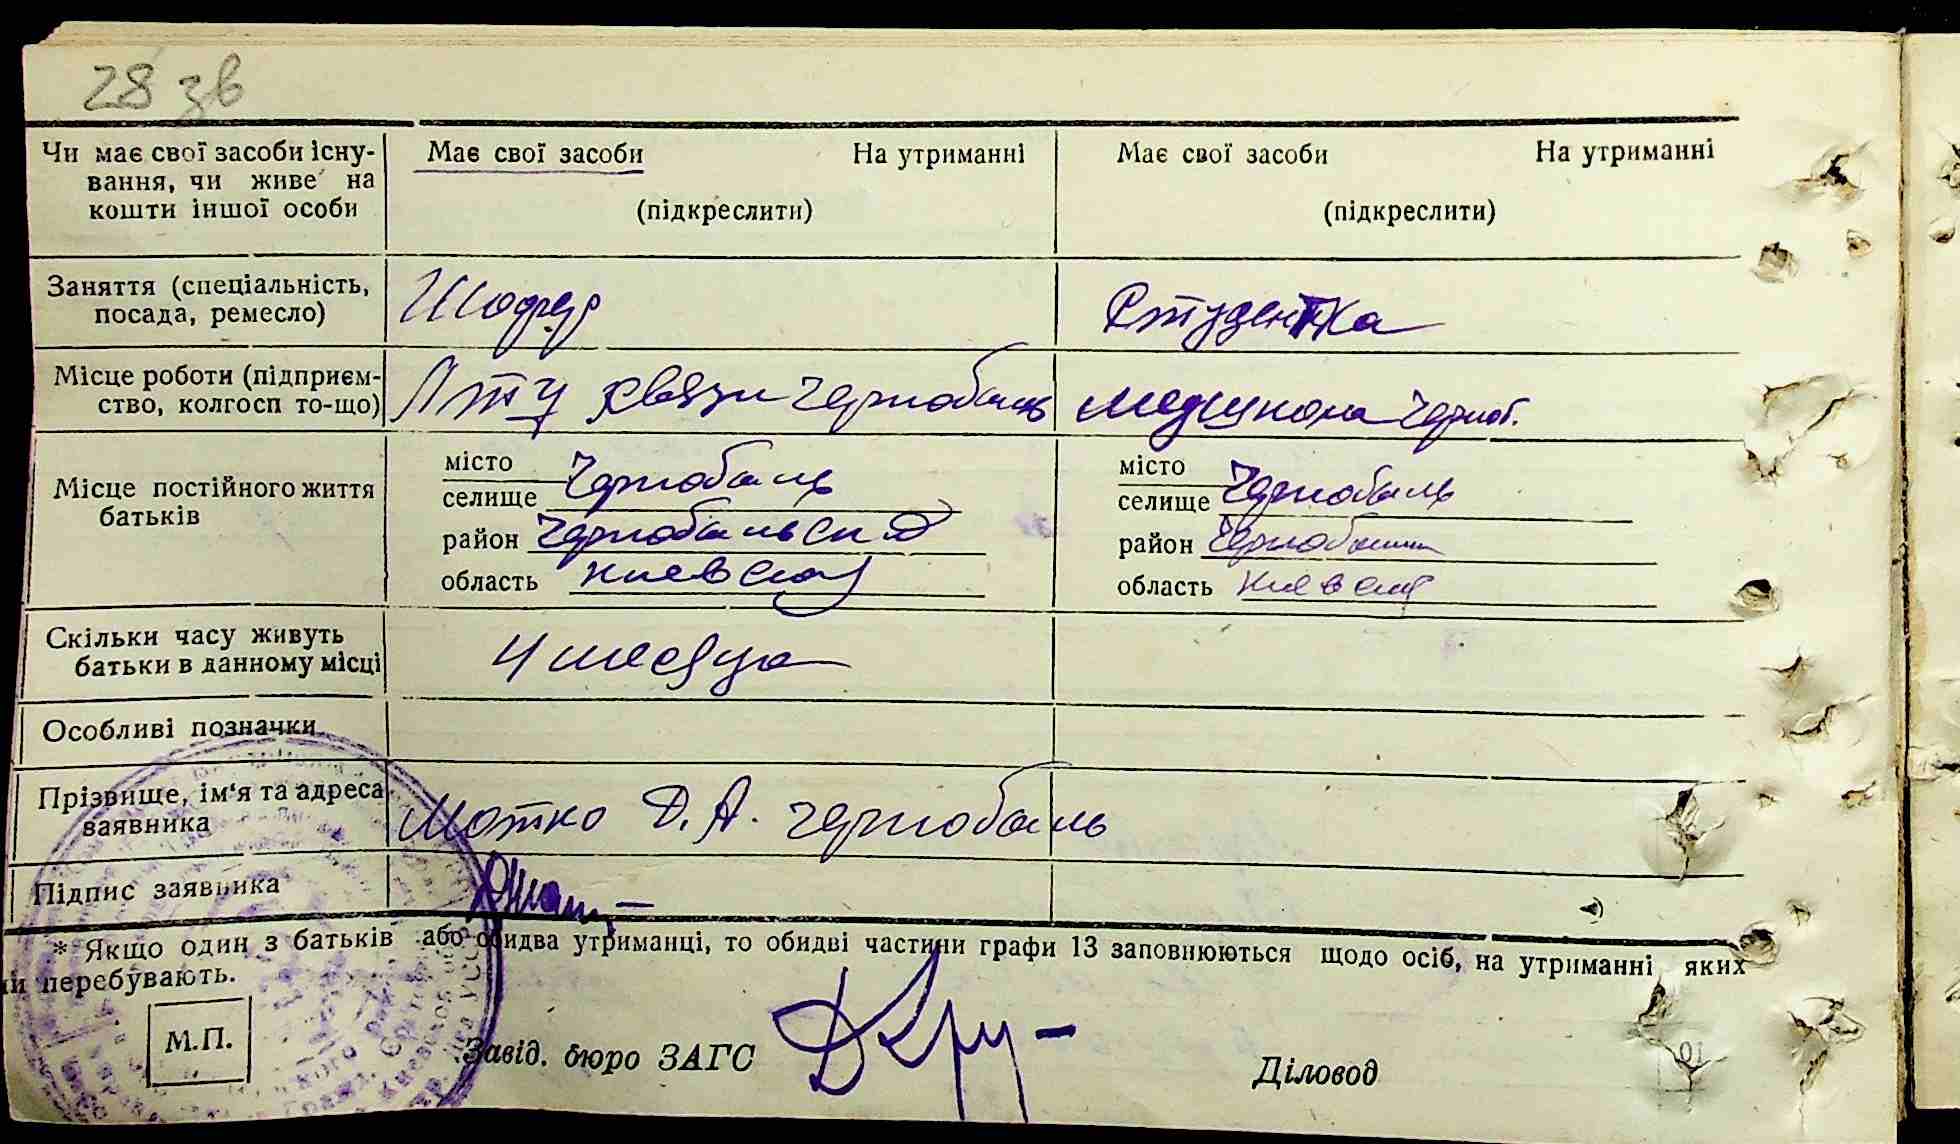 28 зв
Чи має свої засоби існу-
вання, чи живе на
кошти іншої особи
Має свої засоби На утриманні
(підкреслити)
Має свої засоби На утриманні
(підкреслити)
Заняття (спеціальність,
посада, ремесло)
Шофер
Студентка
Місце роботи (підприєм-
ство, колгосп то-що)
связи Чернобыль
Черноб.
Місце постійного життя
батьків
місто
селище Чернобыль
район Чернобыльск
область Киевской
місто
селище Чернобыль
район
область Киевск
Скільки часу живуть
батьки в данному місці
4 месяца
Особливі позначки
Прізвище, ім'я та адреса
заявника
Мотко Д. А. Чернобыль
Підпис заявника
* Якщо один з батьків або обидва утриманці, то обидві частини графи 13 заповнюються щодо осіб, на утриманні яких
ни перебувають.
М.П.
Завід. бюро ЗАГС
Діловод